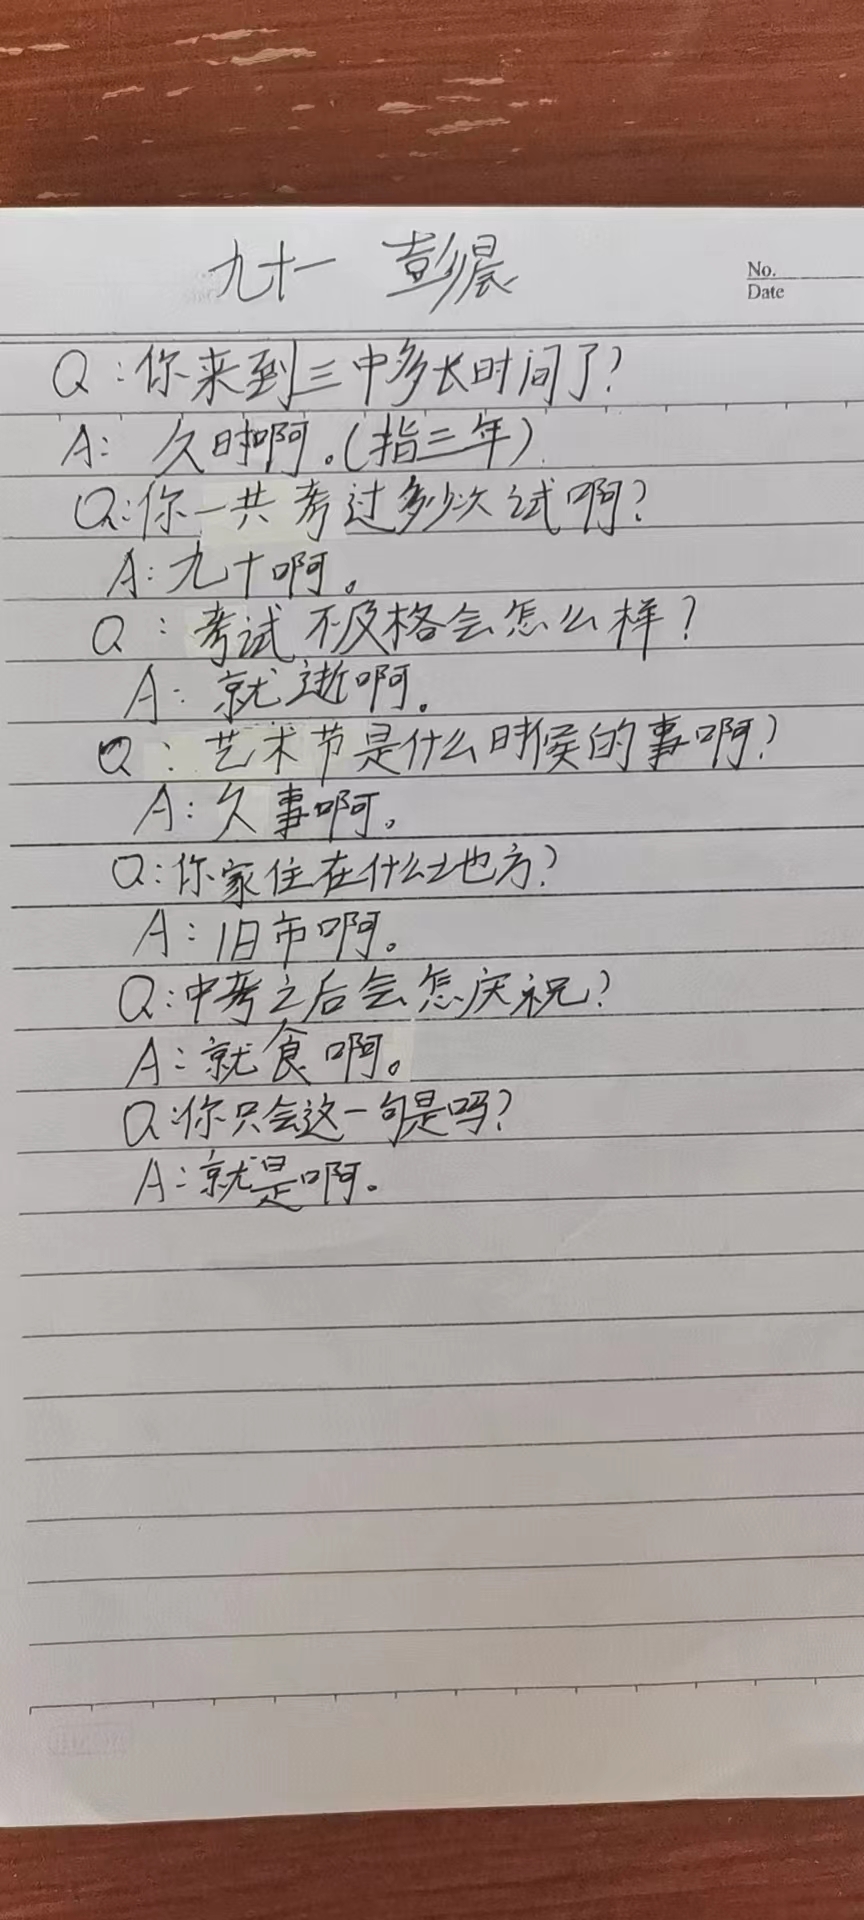 九十一 彭晨
No.
Date
Q:你来到三中多长时间了?
A: 久时啊。(指三年)
Q:你一共考过多少次试啊?
A:九十啊。
Q:考试不及格会怎么样?
A:就逝啊。
Q:艺术节是什么时候的事啊?
A:久事啊。
Q:你家住在什么地方?
A:旧市啊。
Q:中考之后会怎庆祝?
A:就食啊。
Q:你只会这一句是吗?
A:就是啊。